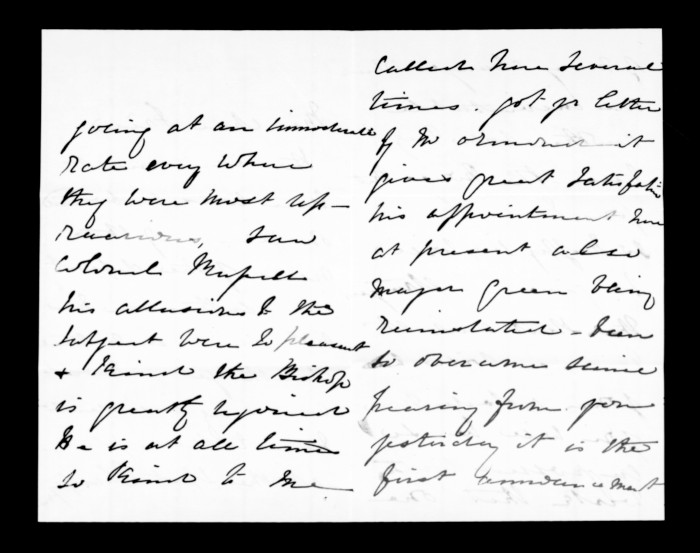 going at an immoderate
rate every where
they were most up-
roarious, saw
Colonel Russell
his allusions to the
subject were so pleasant
& kind the Bishop
is greatly rejoiced
He is at all times
so kind to me
called here several
times. got yr letter
of Mr Ormond it
gives great satisfactn
his appointment here
at present also
Major Green being
reinstated - been
so overcome since
hearing from you
yesterday it is the
first announcement